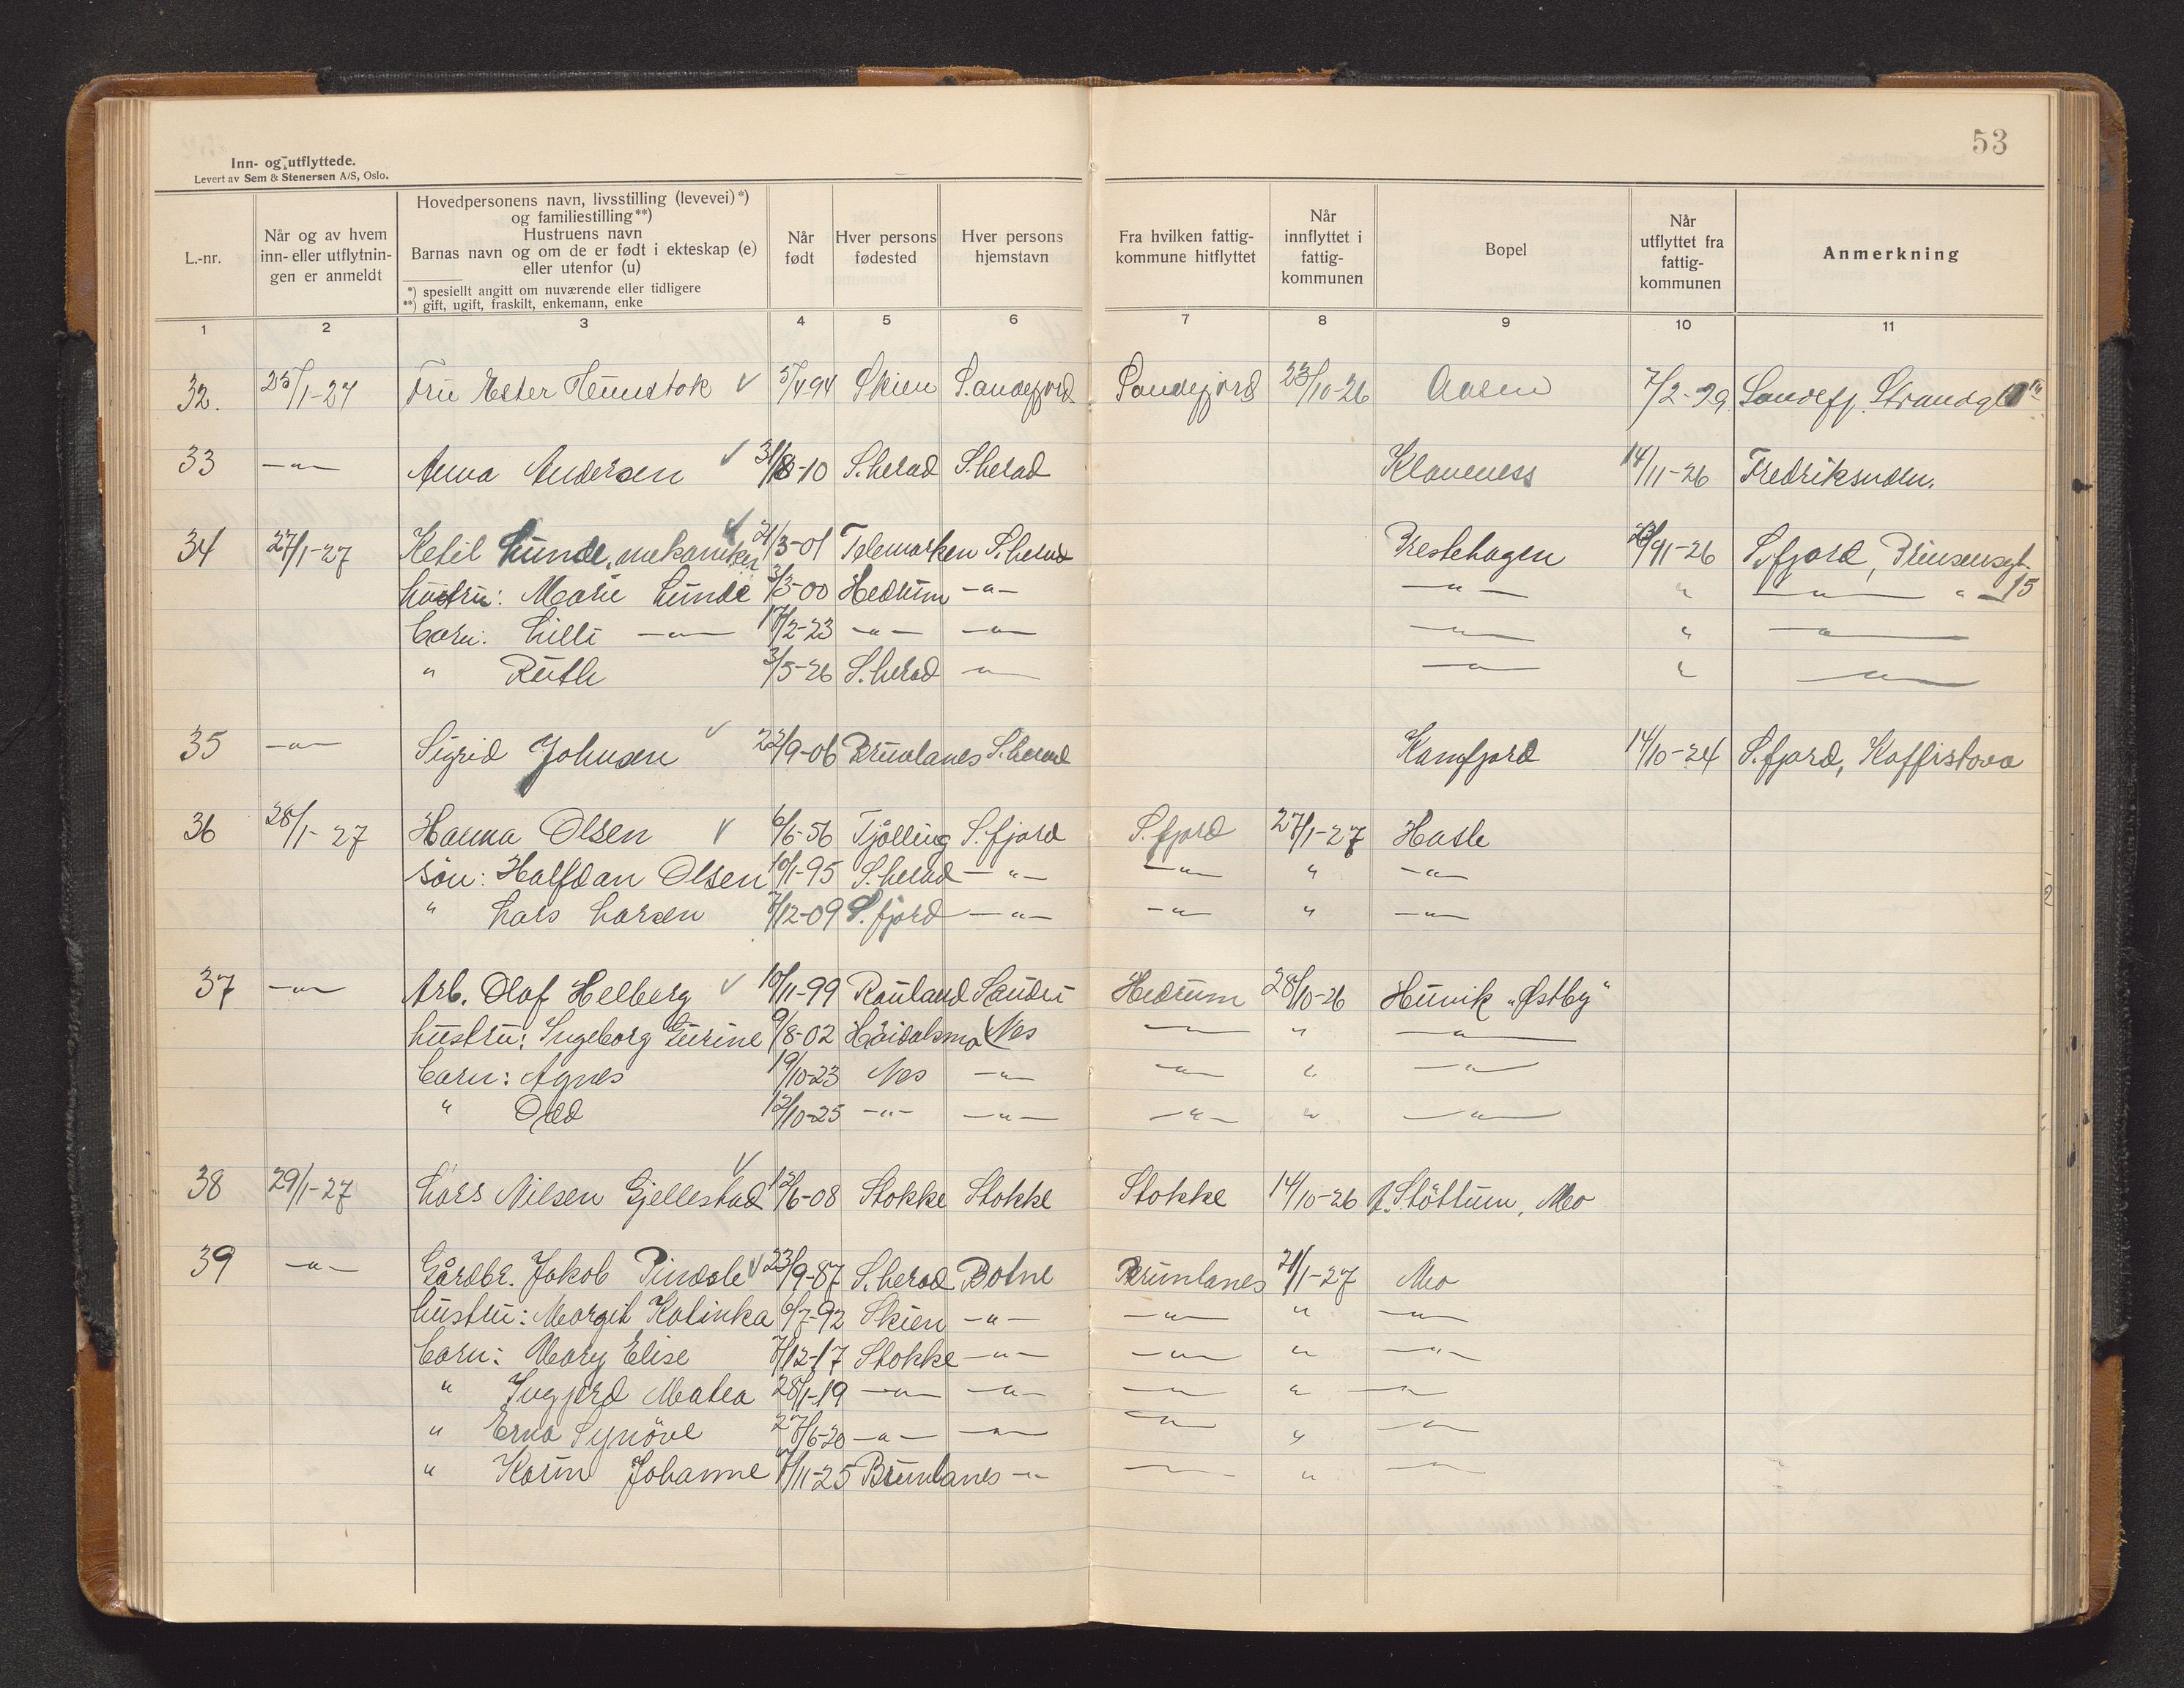 53
Inn- og utflyttede.
Levert av Sem & Stenersen A/S, Oslo.
L.-nr.
Når og av hvem inn- eller utflytnin-gen er anmeldt
Hovedpersonens navn, livsstilling (levevei)*) og familiestilling**)
Hustruens navn
Barnas navn og om de er født i ekteskap (e) eller utenfor (u)
*) spesiellt angitt om nuværende eller tidligere
**) gift, ugift, fraskilt, enkemann, enke
Når født
Hver persons fødested
Hver persons hjemstavn
Fra hvilken fattig-kommune hitflyttet
Når innflyttet i fattig-kommunen
Bopel
Når utflyttet fra fattig-kommunen
Anmerkning
1 2 3 4 5 6 7 8 9 10 11
32. 25/1-27 Fru Ester Hemstok 5/4-94 Skien Sandefjord Sandefjord 23/10-26 Aasen 7/2-29 Sandefj. Strandgt
33 -"- Anna Andersen 31/8-10 S.herad S.herad Klaveness 14/11-26 Fredriksvern.
34 27/1-27 Ketil Lunde, mekaniker 21/3-01 Telemarken S.herad Prestehagen S.fjord, Prinsensgt.
hustru: Marie Lunde 3/3-00 Hedrum -"- -"- " -"- " 15
barn: Lilli -"- 17/2-23 -"- -"- -"- " -"-
" Ruth 3/5-26 S.herad -"- -"- " -"-
35 -"- Sigrid Johnsen 22/9-06 Brunlanes S.herad Kamfjord 14/10-24 S.fjord, Kaffistova
36 28/1-27 Hanna Olsen 6/6-56 Tjölling S.fjord S.fjord 27/1-27 Hasle
sön: Halfdan Olsen 10/1-95 S.herad -"- -"- " -"-
" Lars Larsen 7/12-09 S.fjord -"- -"- " -"-
37 -"- Arb. Olaf Helberg 10/11-99 Rauland Sauden Hedrum 28/10-26 Hunvik „Østby"
hustru: Ingeborg Gurine 9/8-02 Höidalsmo Nes -"- " -"-
barn: Agnes 19/10-23 Nes -"- -"- " -"-
" Odd 12/10-25 -"- -"- -"- " -"-
38 29/1-27 Lars Nilsen Gjellestad 12/6-08 Stokke Stokke Stokke 14/10-26 Slöttum, Mo
39 -"- Gårdbr. Jakob Pindsle 23/9-87 S.herad Botne Brunlanes 21/1-27 Mo
hustru: Margit Katinka 6/7-92 Skien -"- -"- " -"-
barn: Mary Elise 7/12-17 Stokke -"- -"- " -"-
" Ingjerd Matea 28/1-19 -"- -"- -"- " -"-
" Erna Synöve 27/6-20 -"- -"- -"- " -"-
" Karin Johanne 7/11-25 Brunlanes -"- -"- " -"-